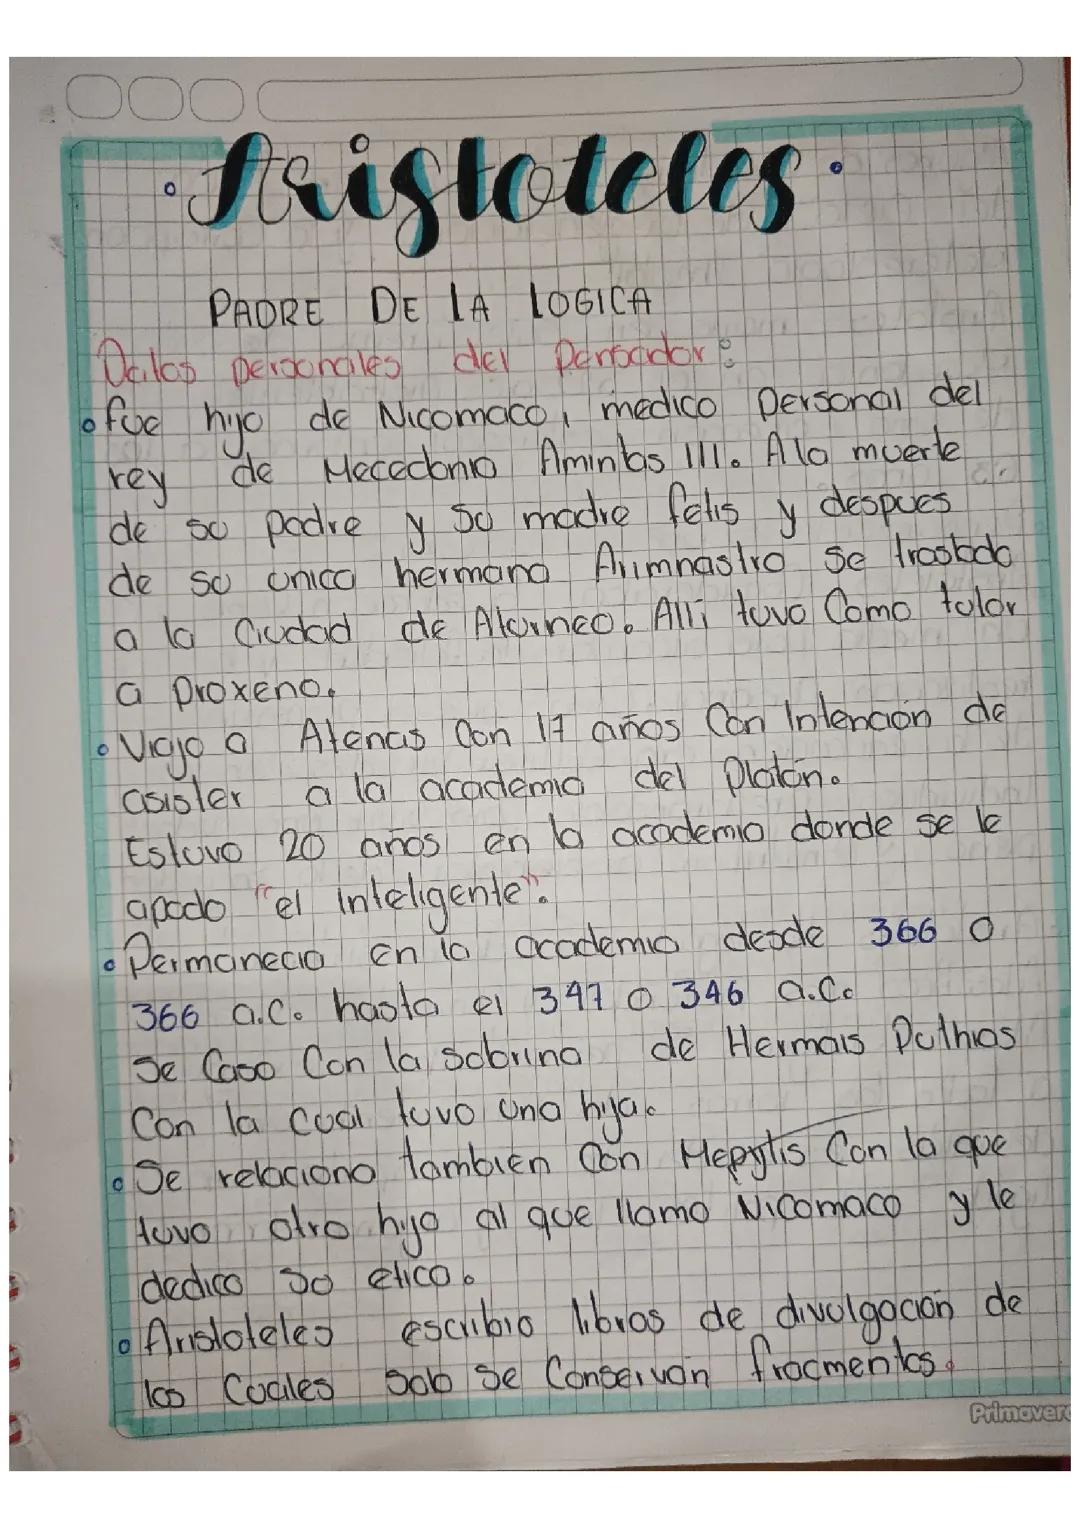 Aristoteles
PADRE DE LA LOGICA
Datos personales del Pensador:
fue hijo de Nicomaco, medico personal del
rey de Mecedonio Amintas III. A la muerte
de su padre y su madre fetis y despues
de su unico hermano Arimnastro se traslado
a la Ciudad de Atarneo. Alli tuvo Como tutor
a proxeno.
Viajo a Atenas Con 17 años Con Intención de
asister a la academia del Platón.
Estuvo 20 años en la academia donde se le
apodo "el inteligente".
Permanecio en la academia desde 366 o
366 a.C. hasta el 347 o 346 a.C.
Se Caso Con la sobrina de Hermais Puthias
Con la cual tuvo una hija.
Se relaciono tambien Con Hepytis Con la que
tuvo otro hijo al que llamo Nicomaco y le
dedico su etica.
Aristoteles escribio libros de divulgación de
los Cuales solo se Conservan fracmentos.
Primavera